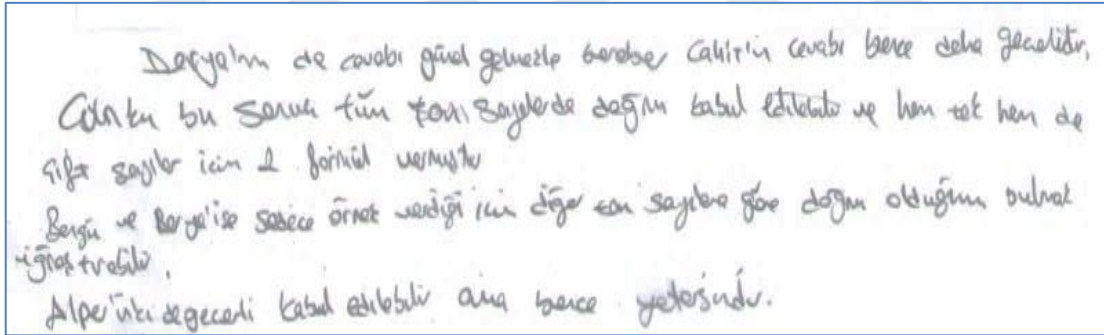 Derya'nın da cevabı güzel gelmekle beraber Cahit'in cevabı bence daha geçerlidir,
Çünkü bu sonuç tüm tam sayılarda doğru kabul edilebilir ve hem tek hem de
çift sayılar için 2 formül vermiştir
Bengü ve Berge'ise sadece örnek verdiği için diğer tam sayılara göre doğru olduğunu bulmak
uğraştırabilir,
Alper'inki de geçerli kabul edilebilir ama bence yetersizdir.